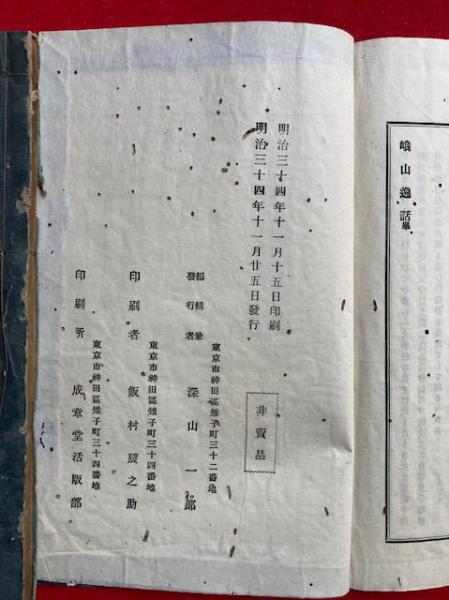 峨山逸話畢
明治三十四年十一月十五日印刷
明治三十四年十一月廿五日發行
非賣品
東京市神田區雉子町三十二番地
編輯兼
發行者 深山一郎
東京市神田區雉子町三十四番地
印刷者 飯村之助
東京市神田區雉子町三十四番地
印刷所 成章堂活版部